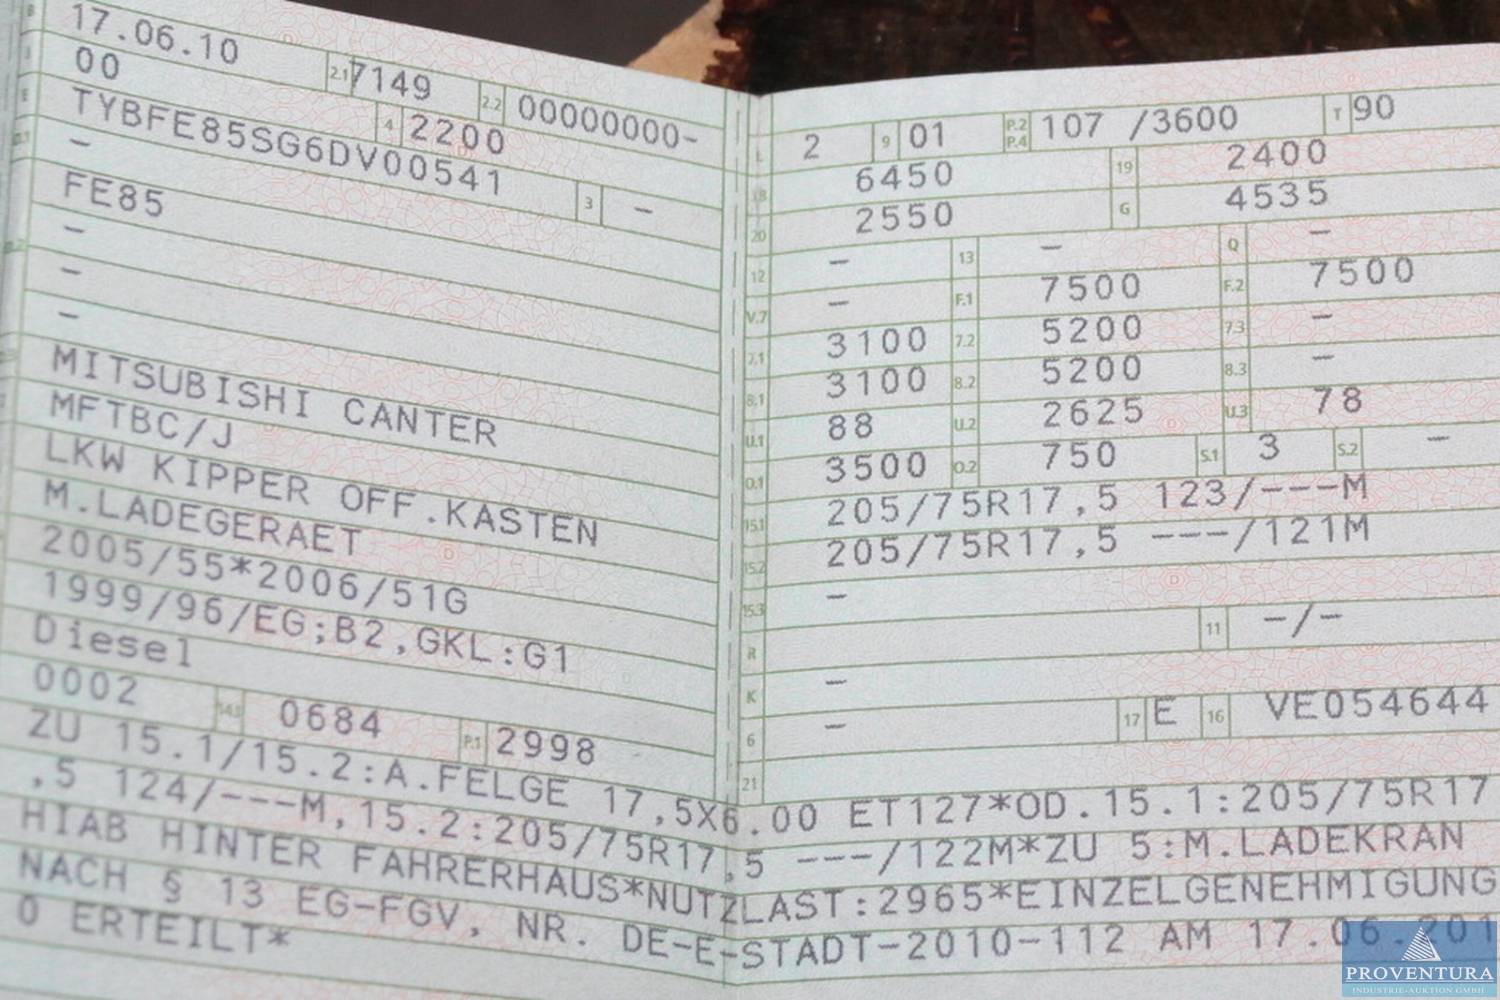 B 17.06.10 2.1 7149 2.2 00000000-
J 00 4 2200
E TYBFE85SG6DV00541 3 -
D.1 -
FE85
-
D.2 -
-
MITSUBISHI CANTER
MFTBC/J
LKW KIPPER OFF.KASTEN
M.LADEGERAET
2005/55*2006/51G
1999/96/EG;B2,GKL:G1
Diesel
0002 14.1 0684 P.1 2998
L 2 9 01 P.2 P.4 107 /3600 T 90
18 6450 19 2400
20 2550 G 4535
12 - 13 - Q -
V.7 - F.1 7500 F.2 7500
7.1 3100 7.2 5200 7.3 -
8.1 3100 8.2 5200 8.3 -
U.1 88 U.2 2625 U.3 78
O.1 3500 O.2 750 S.1 3 S.2 -
15.1 205/75R17,5 123/---M
15.2 205/75R17,5 ---/121M
15.3 -
R 11 -/-
K -
6 - 17 E 16 VE054644
21
ZU 15.1/15.2:A.FELGE 17,5X6.00 ET127*OD.15.1:205/75R17
,5 124/---M,15.2:205/75R17,5 ---/122M*ZU 5:M.LADEKRAN
HIAB HINTER FAHRERHAUS*NUTZLAST:2965*EINZELGENEHMIGUNG
NACH § 13 EG-FGV, NR. DE-E-STADT-2010-112 AM 17.06.201
0 ERTEILT*
PROVENTURA
INDUSTRIE-AUKTION GMBH